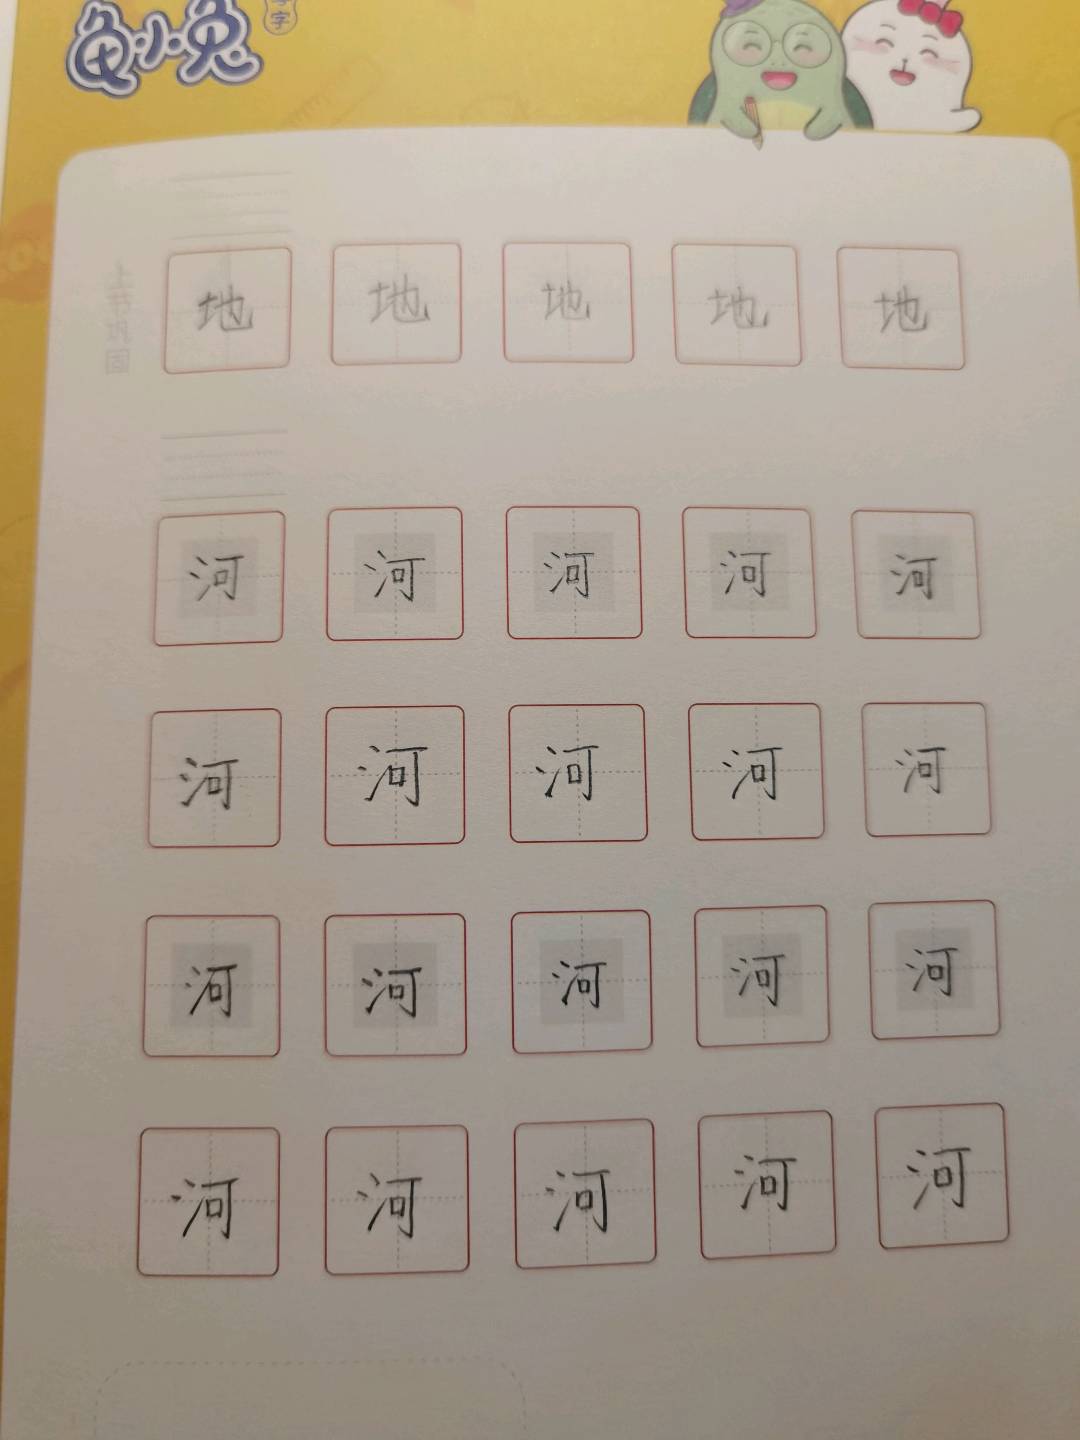 龟小兔
写字
上节巩固
地 地 地 地 地
河 河 河 河 河
河 河 河 河 河
河 河 河 河 河
河 河 河 河 河